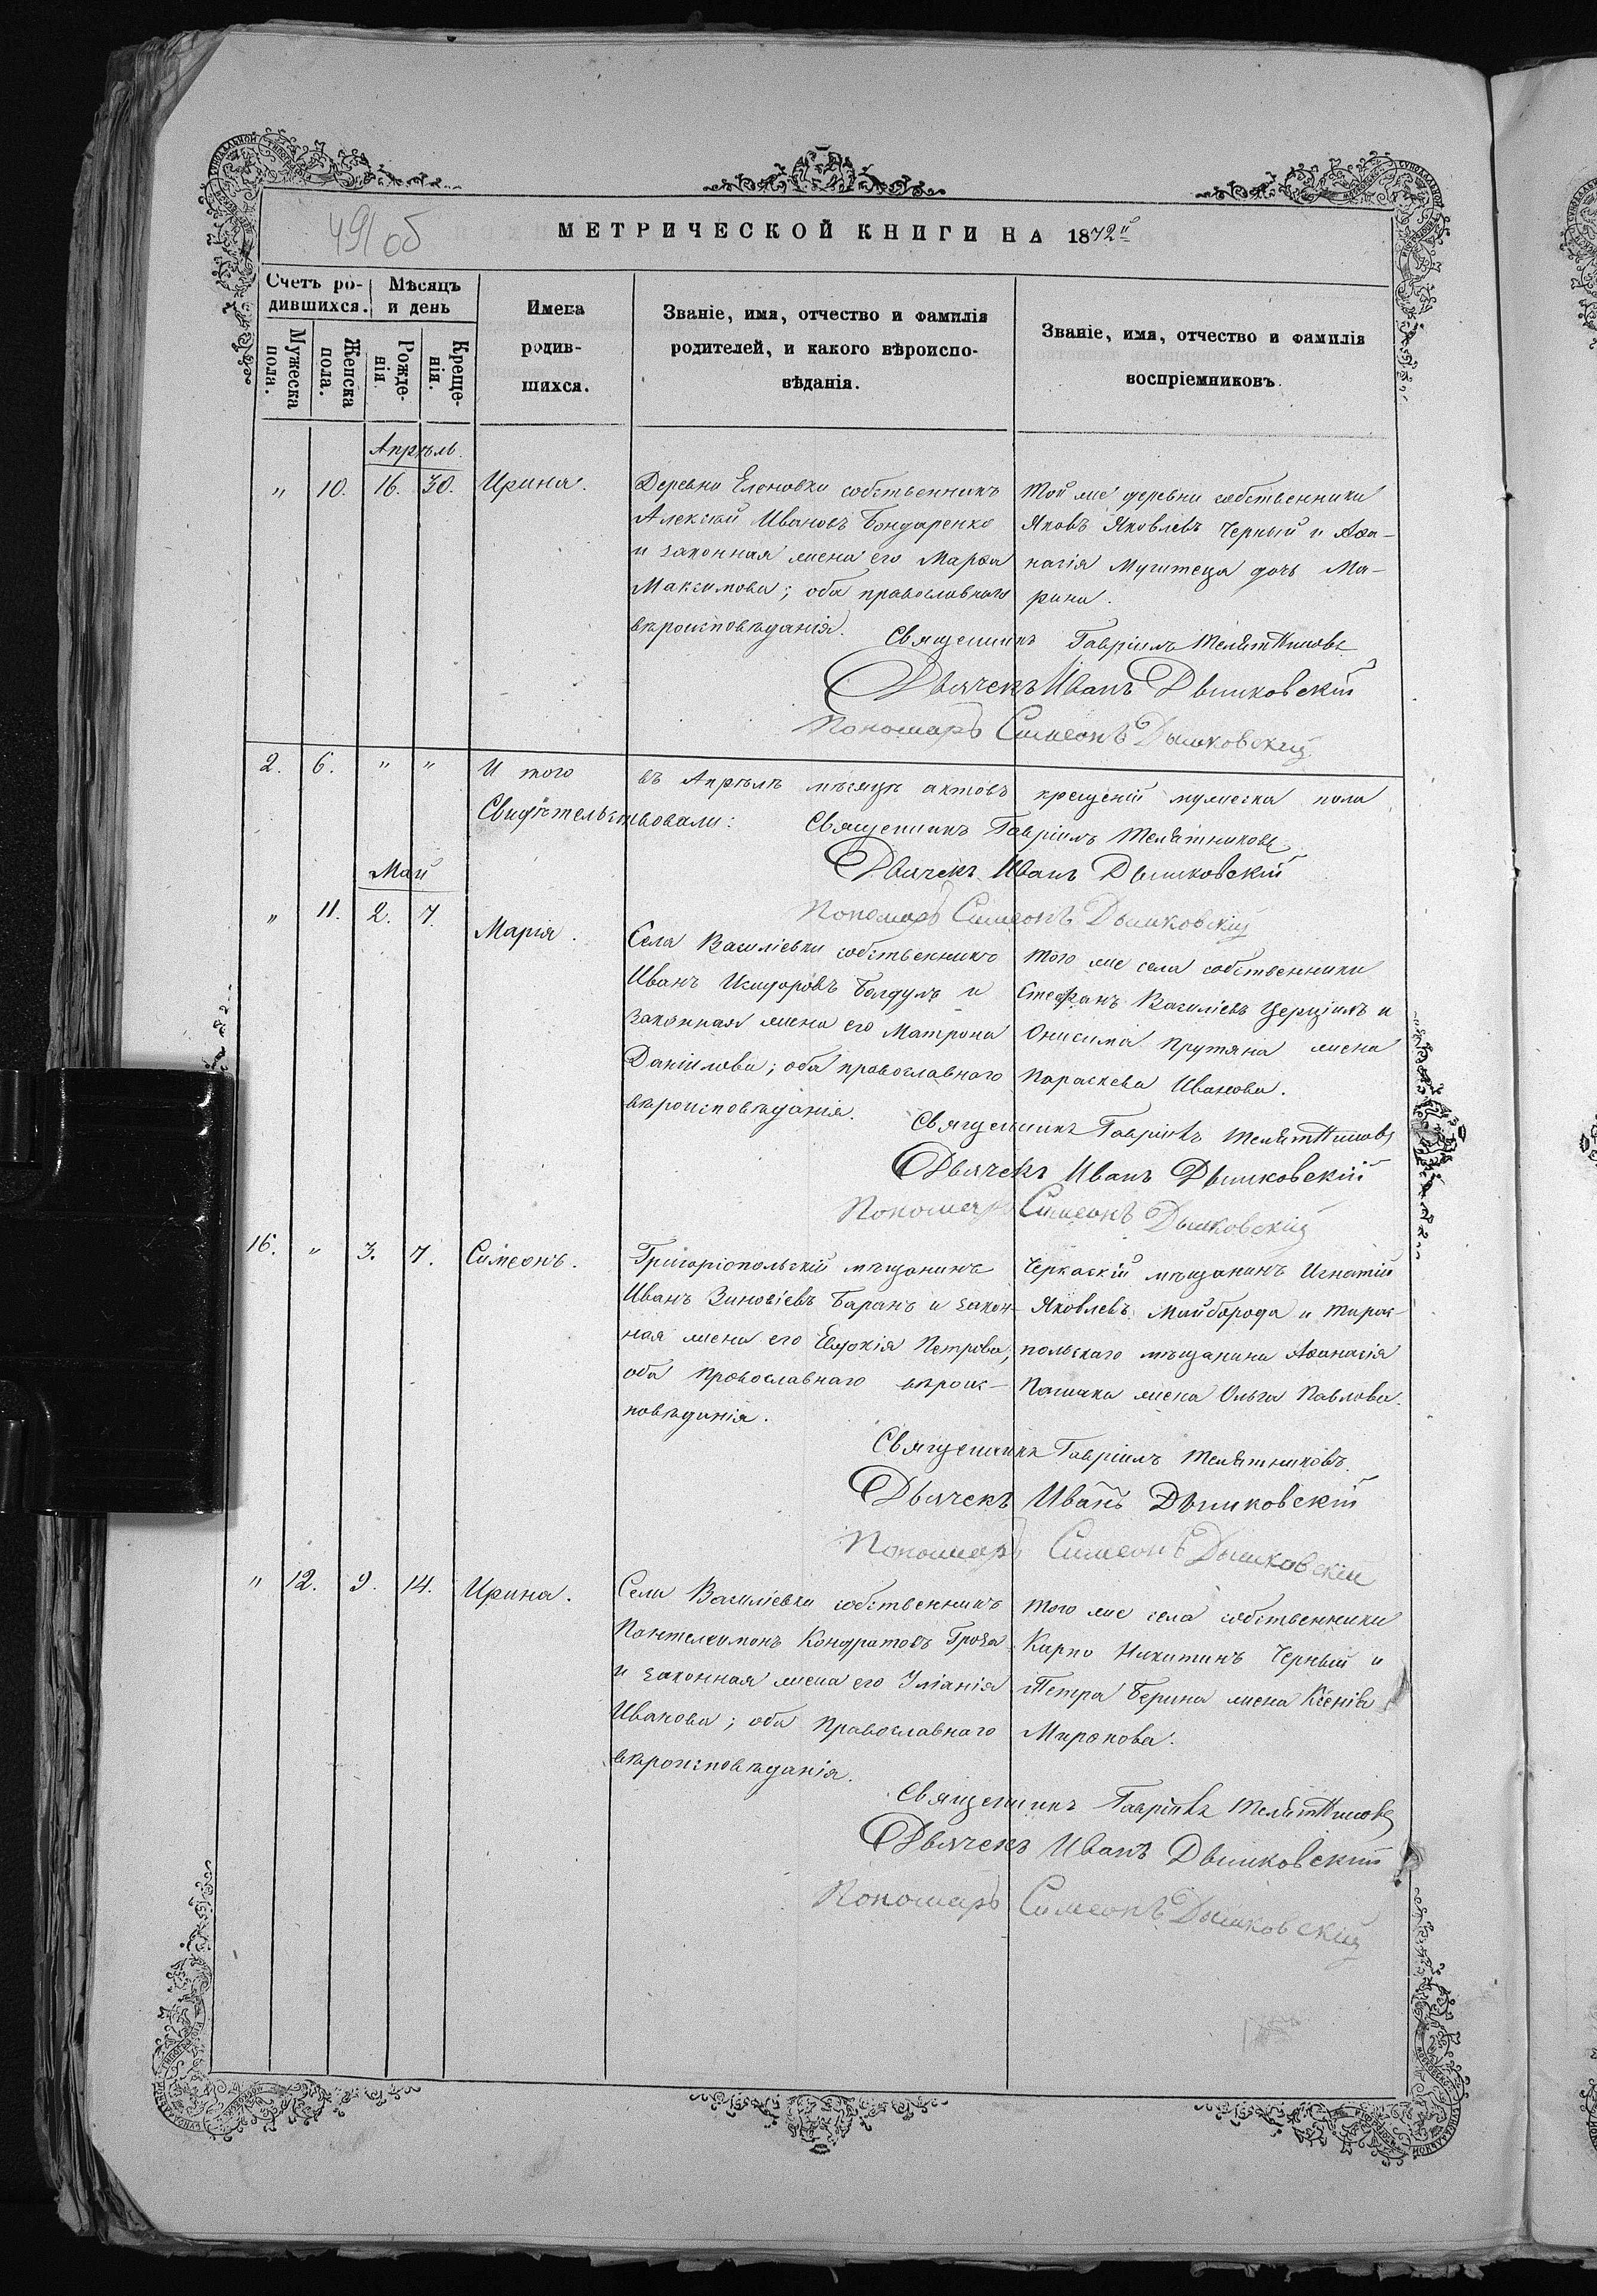 49 об
МЕТРИЧЕСКОЙ КНИГИ НА 1872й
Счетъ ро-
дившихся.
Мѣсяцъ
и день
Мужеска
пола.
Женска
пола.
Рожде-
нія.
Креще-
нія.
Имена
родив-
шихся.
Званіе, имя, отчество и фамилія
родителей, и какого вѣроиспо-
вѣданія.
Званіе, имя, отчество и фамилія
воспріемниковъ.
Апрѣль.
" 10. 16. 30. Ирина.
Деревни Еленовки собственникъ
Алексій Ивановъ Бондаренко
и законная жена его Марѳа
Максимова; оба православнаго
вѣроисповѣданія.
Той же деревни собственники
Яковъ Яковлевъ Черный и Аѳа-
насія дочь Ма-
рина.
Священникъ Гавріилъ Телятниковъ
Дьячекъ Иванъ Дымковскій
Пономарь Симеонъ Дымковскій
2. 6. " " И того въ Апрѣлѣ мѣсяцѣ актовъ крещеній мужеска пола
Свидѣтельствовали: Священникъ Гавріилъ Телятниковъ
Дьячекъ Иванъ Дымковскій
Пономарь Симеонъ Дымковскій
Май
" 11. 2. 7. Марія.
Села Василіевки собственникъ
Иванъ Исидоровъ Болдулъ и
законная жена его Матрона
Даніилова; оба православнаго
вѣроисповѣданія.
Того же села собственники
Стефанъ Василіевъ и
Онисима Прутяна жена
Параскева Иванова.
Священникъ Гавріилъ Телятниковъ
Дьячекъ Иванъ Дымковскій
Пономарь Симеонъ Дымковскій
16. " 3. 7. Симеонъ.
Григоріопольскій мѣщанинъ
Иванъ Зиновіевъ Баранъ и закон-
ная жена его Евдокія Петрова,
оба православнаго вѣроис-
повѣданія.
Черкаскій мѣщанинъ Игнатій
Яковлевъ Майборода и Тирас-
польскаго мѣщанина Аѳанасія
жена Ольга Павлова.
Священникъ Гавріилъ Телятниковъ
Дьячекъ Иванъ Дымковскій
Пономарь Симеонъ Дымковскій
" 12. 9. 14. Ирина.
Села Василіевки собственникъ
Пантелеимонъ Кондратовъ Гроза
и законная жена его Уліанія
Иванова; оба Православнаго
вѣроисповѣданія.
Того же села собственники
Карпо Никитинъ Черный и
Петра Берина жена Ксенія
Миронова.
Священникъ Гавріилъ Телятниковъ
Дьячекъ Иванъ Дымковскій
Пономарь Симеонъ Дымковскій